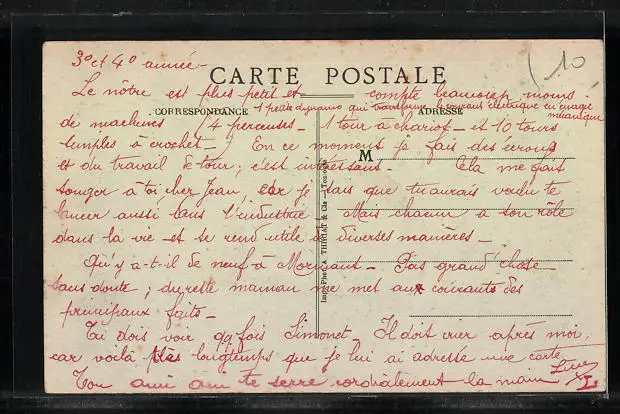 3º et 4º année -
10
CARTE POSTALE
Le nôtre est plus petit et compte beaucoup moins
CORRESPONDANCE
ADRESSE
1 petite dynamo qui transforme le courant électrique en énergie mécanique
de machines 4 perceuses - 1 tour à chariot - et 10 tours
simples à crochet - En ce moment je fais des écrous
M
et du travail de tour ; c'est intéressant. Cela me fait
songer à toi cher Jean car je sais que tu aurais voulu te
lancer aussi dans l'industrie Mais chacun a son rôle
dans la vie - et se rend utile de diverses manières -
Qu'y a-t-il de neuf à Mormant - Pas grand'chose
sans doute ; du reste maman me met aux courants des
principaux faits -
Tu dois voir qqfois Simonet. Il doit crier après moi,
car voilà très longtemps que je lui ai adressé une carte.
Ton ami qui te serre cordialement la main
Imp.-Phot. A. THIRIAT & Cie - Toulouse